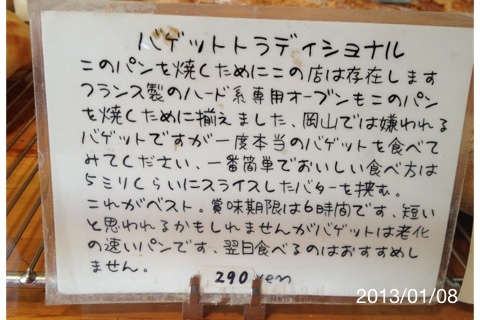 バゲットトラディショナル
このパンを焼くためにこの店は存在します
フランス製のハード系専用オーブンもこのパン
を焼くために揃えました、岡山では嫌われる
バゲットですが一度本当のバゲットを食べて
みてください、一番簡単でおいしい食べ方は
5ミリくらいにスライスしたバターを挟む。
これがベスト。賞味期限は6時間です、短い
と思われるかもしれませんがバゲットは老化
の速いパンです、翌日食べるのはおすすめし
ません。
290yen
2013/01/08